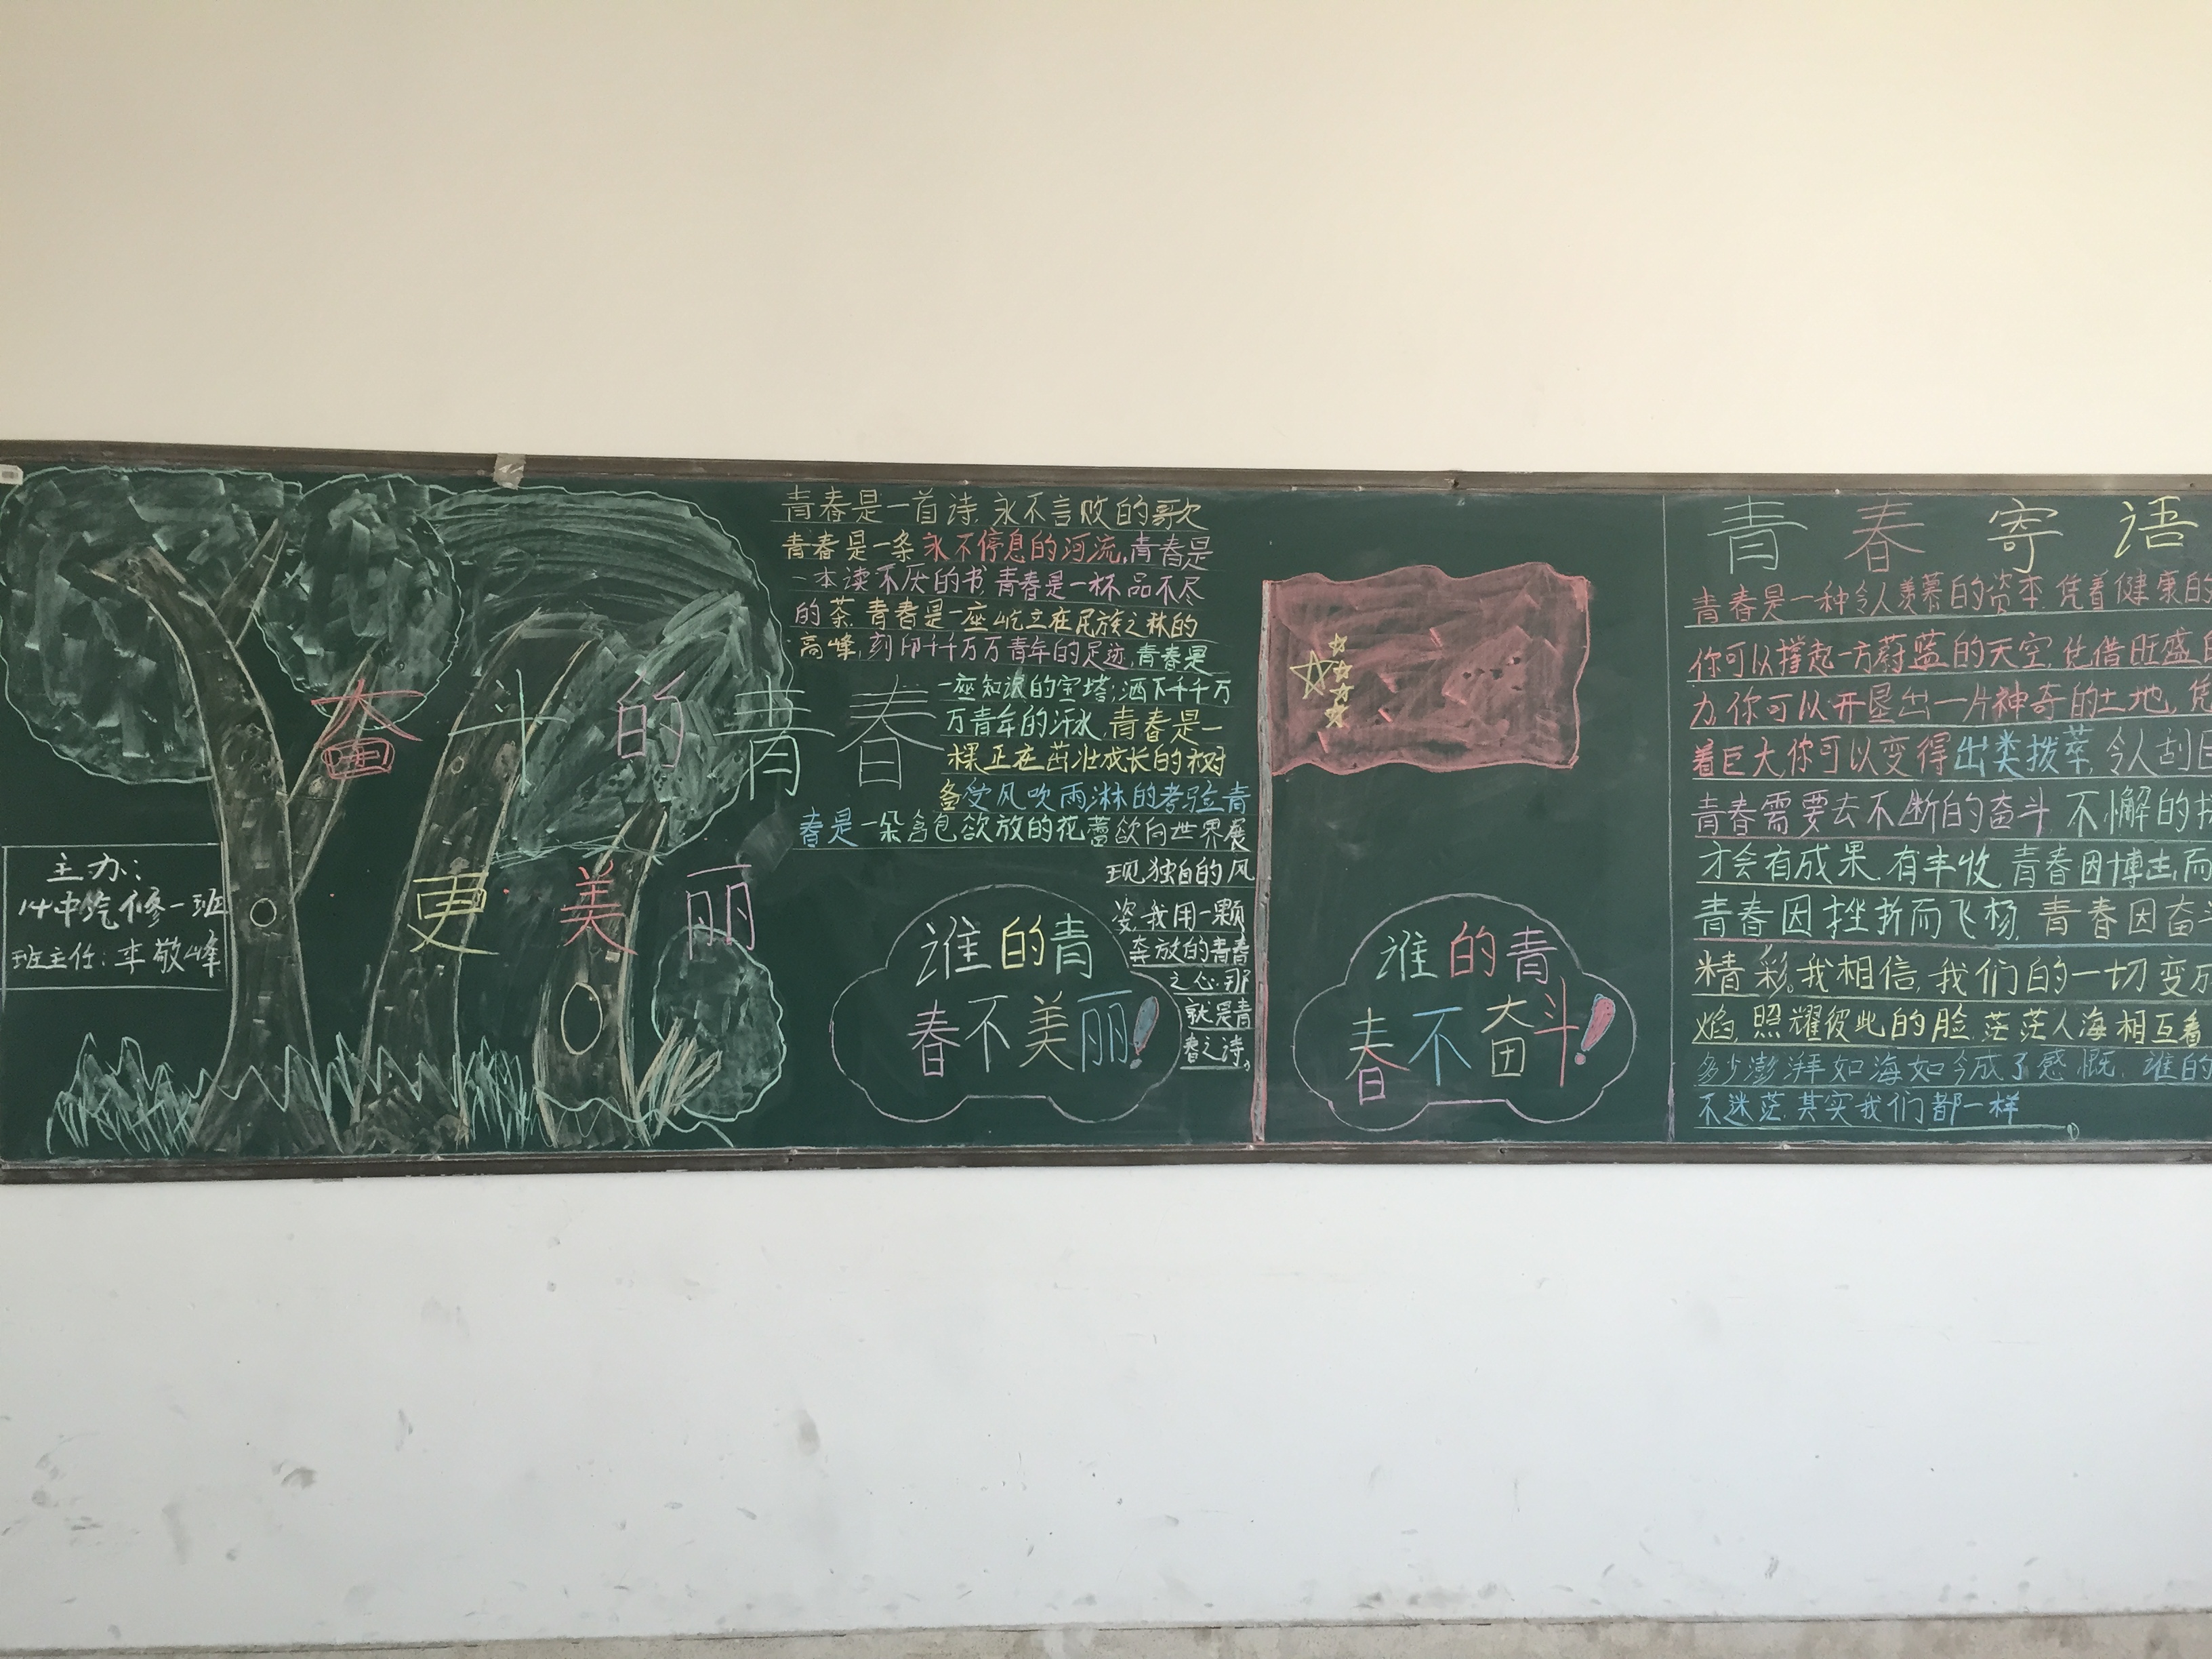 奋斗的青春
更美丽
主办:
14中汽修一班
班主任:李敬峰
青春是一首诗,永不言败的歌
青春是一条永不停息的河流,青春是
一本读不厌的书,青春是一杯品不尽
的茶,青春是一座屹立在民族之林的
高峰,刻印千千万万青年的足迹,青春是
一座知识的宝塔;洒下千千万
万青年的汗水,青春是一
棵正在茁壮成长的树
备受风吹雨淋的考验青
春是一朵含包欲放的花蕾欲向世界展
现独自的风
姿,我用一颗
奔放的青春
之心,那
就是青
春之诗。
谁的青
春不美丽!
谁的青
春不奋斗!
青春寄语
青春是一种令人羡慕的资本,凭着健康的
你可以撑起一方蔚蓝的天空,凭借旺盛的
力,你可以开垦出一片神奇的土地,凭
着巨大,你可以变得出类拨萃,令人刮目
青春需要去不断的奋斗,不懈的
才会有成果,有丰收,青春因博击而
青春因挫折而飞杨,青春因奋
精彩,我相信,我们的一切变成
焰,照耀彼此的脸,茫茫人海相互看
多少澎湃如海如今成了感慨,谁的
不迷茫,其实我们都一样